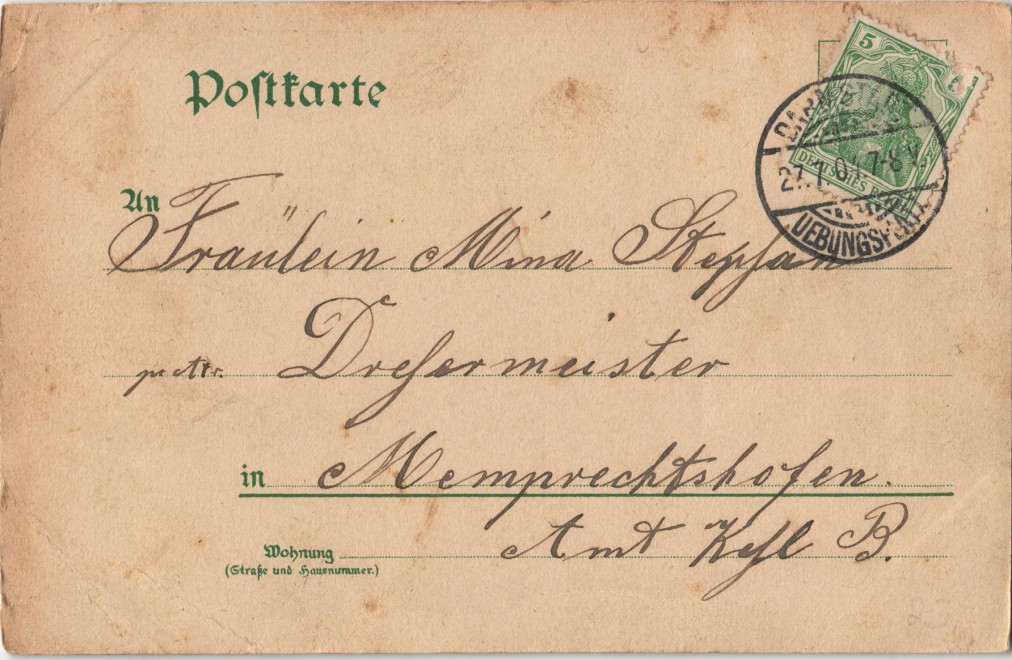 Postkarte
5
DEUTSCHES REICH
DARMSTADT
27.1.01. 7-8V.
UEBUNGSPLATZ
An Fräulein Mina Stephan
pr. Adr. Drehermeister
in Memprechtshofen.
Amt Kehl B.
Wohnung
(Straße und Hausnummer.)